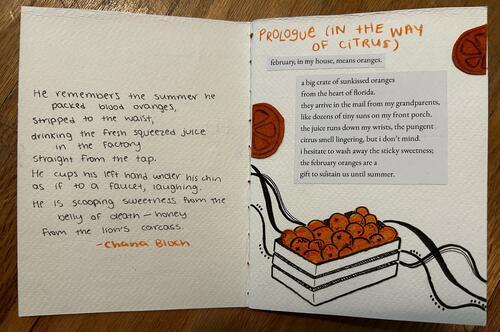 He remembers the summer he
packed blood oranges,
stripped to the waist,
drinking the fresh squeezed juice
in the factory
straight from the tap.
He cups his left hand under his chin
as if to a faucet, laughing.
He is scooping sweetness from the
belly of death – honey
from the lion's carcass.
-Chana Bloch
PROLOGUE (IN THE WAY
OF CITRUS)
february, in my house, means oranges.
a big crate of sunkissed oranges
from the heart of florida.
they arrive in the mail from my grandparents,
like dozens of tiny suns on my front porch.
the juice runs down my wrists, the pungent
citrus smell lingering, but i don't mind.
i hesitate to wash away the sticky sweetness;
the february oranges are a
gift to sustain us until summer.